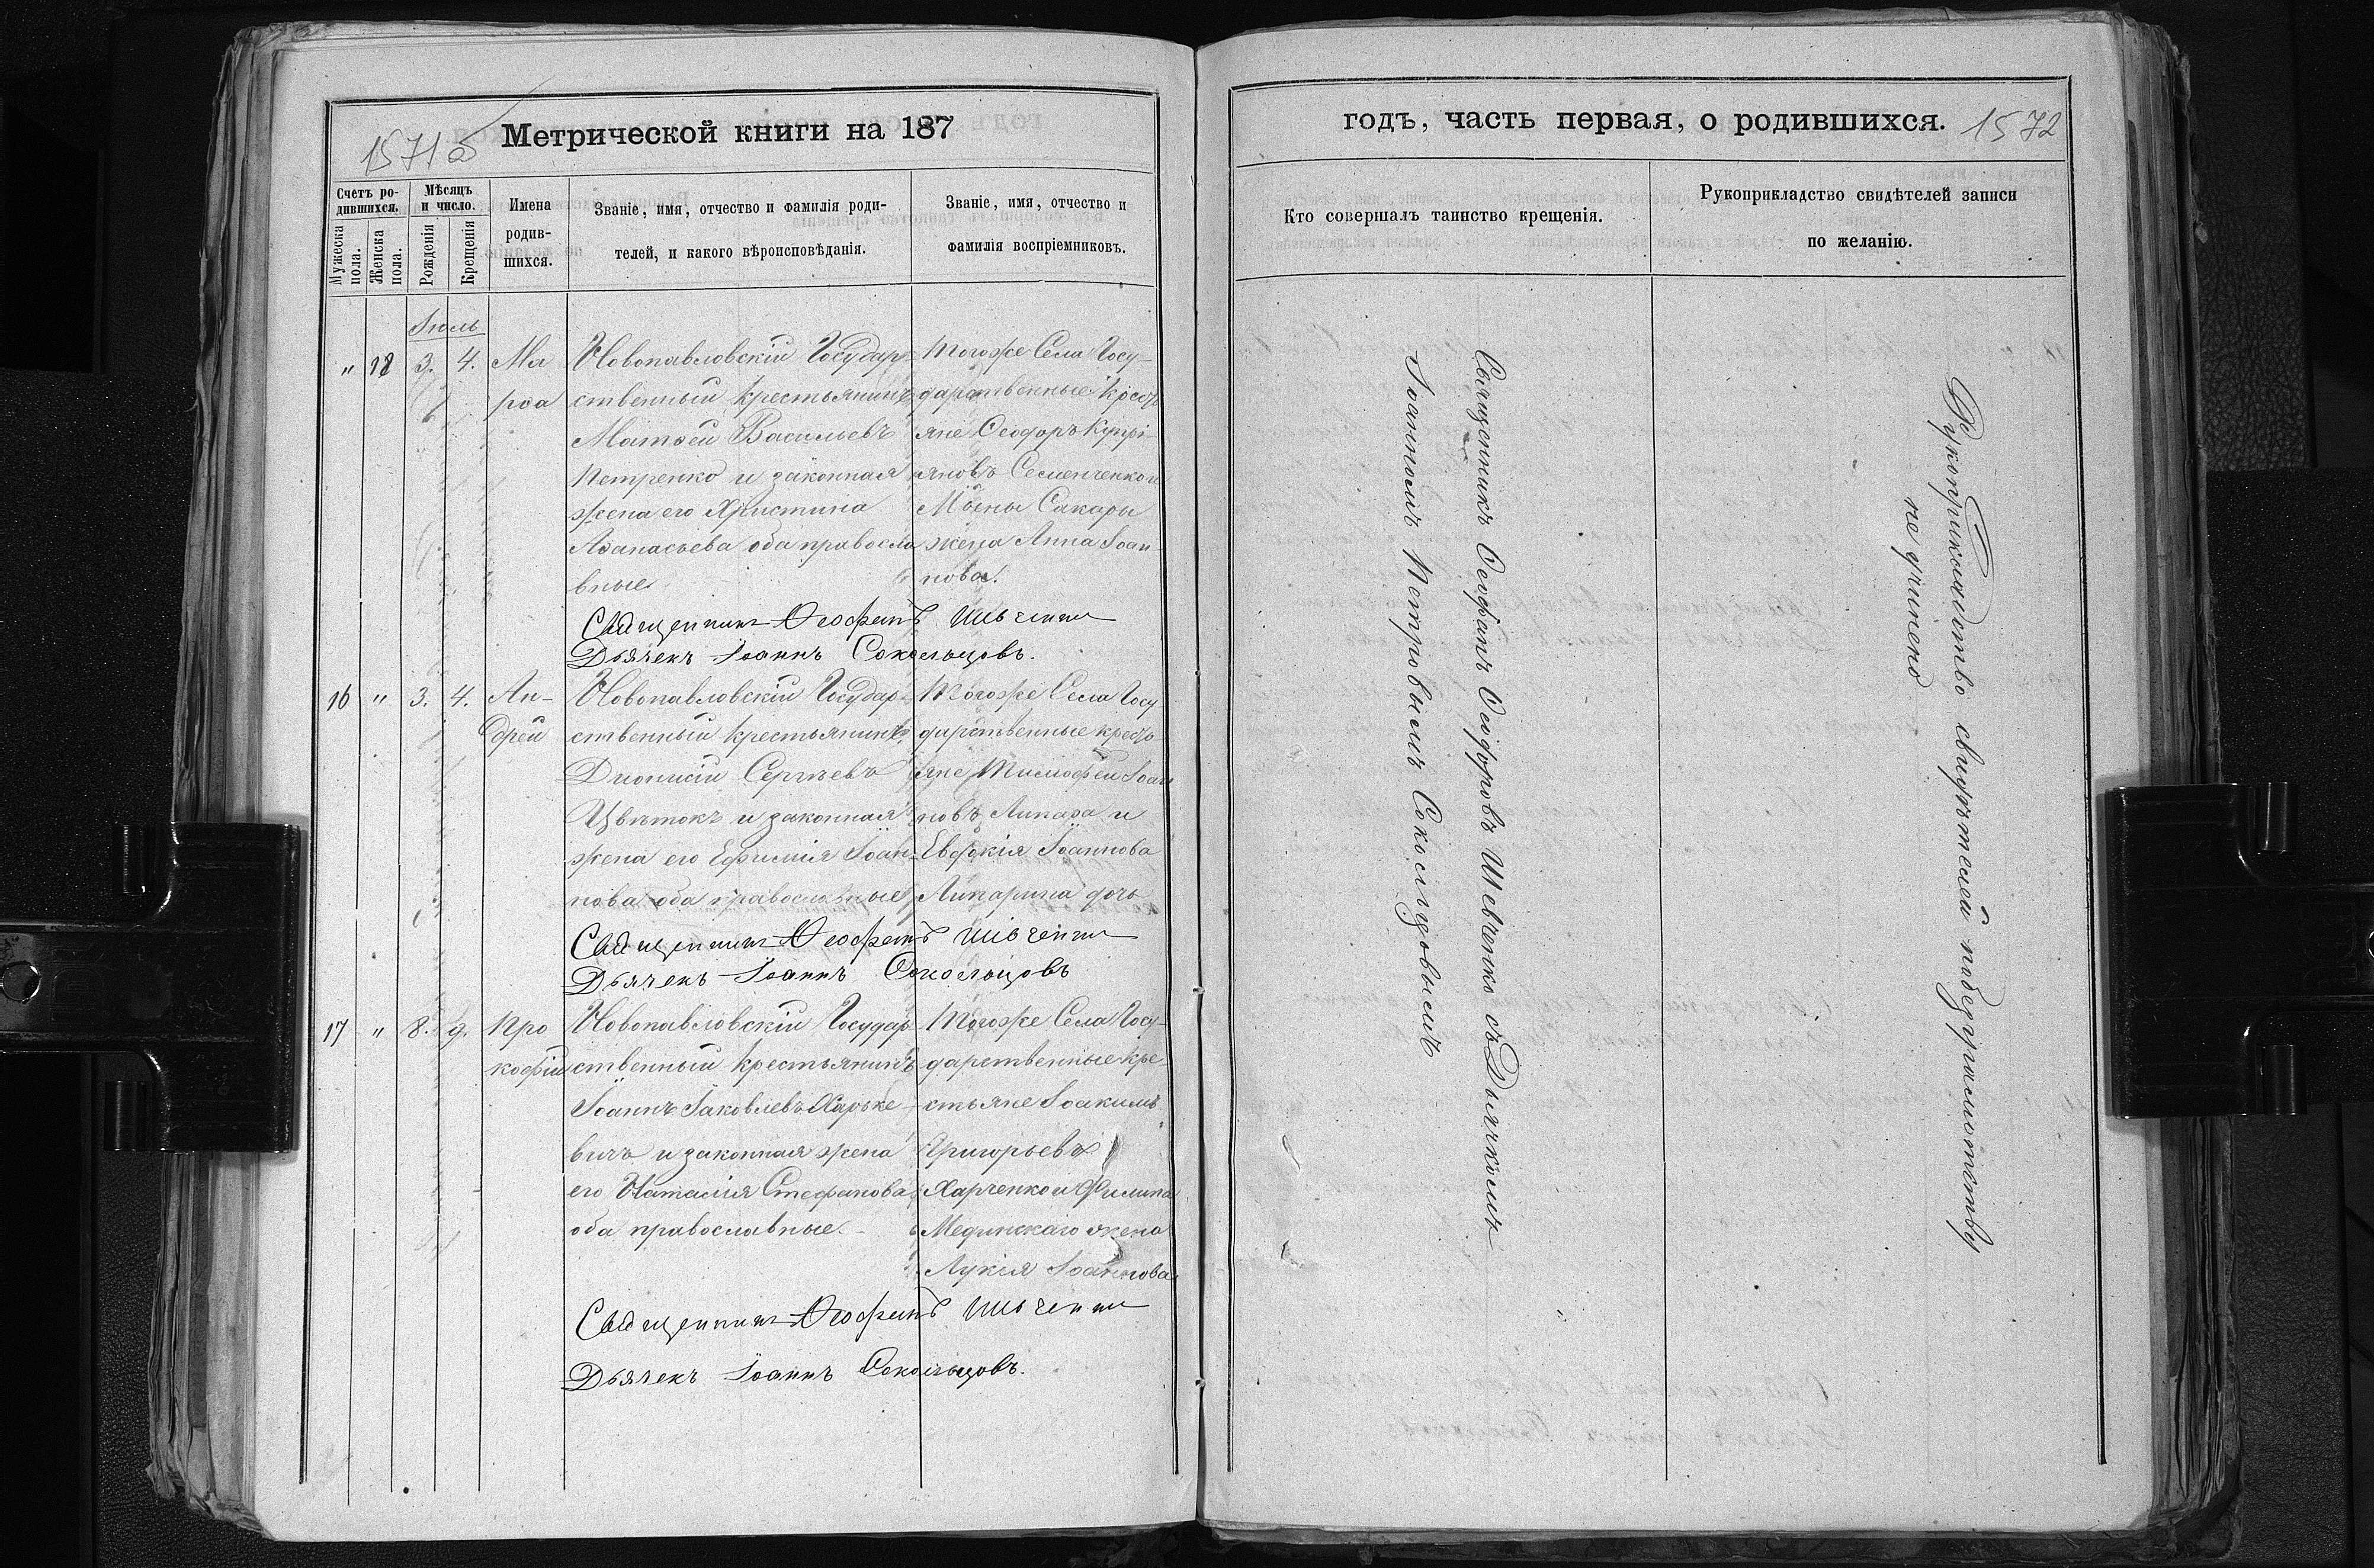 1571 б
Метрической книги на 187
Счетъ ро-
дившихся.
Мѣсяцъ
и число.
Мужеска
пола.
Женска
пола.
Рожденія
Крещенія
Имена
родив-
шихся.
Званіе, имя, отчество и фамилія роди-
телей, и какого вѣроисповѣданія.
Званіе, имя, отчество и
фамилія воспріемниковъ.
Іюль
" 12 3. 4. Ма
роа
Новопавловскій Государ-
ственный крестьянинъ
Матѳей Васильевъ
Петренко и законная
жена его Христина
Аѳанасьева оба правосла
вные
Тогоже Села Госу-
дарственные крестъ
яне Ѳеодоръ Купрі-
яновъ Семенченко и
Сакары
жена Анна Іоан-
нова.
Священникъ Ѳеофанъ Шевченко
Дьячекъ Іоаннъ Сокольцовъ.
16 " 3. 4. Ан-
дрей
Новопавловскій Государ-
ственный крестьянинъ
Дионисій Сергѣевъ
Цвѣтокъ и законная
жена его Ефимія Іоан-
нова оба православные
Тогоже Села Госу
дарственные кресть
яне Тимофей Іоан
новъ Липара и
Евдокія Іоаннова
Липарина дочь
Священникъ Ѳеофанъ Шевченко
Дьячекъ Іоаннъ Сокольцовъ
17 " 8. 9. Про
кофій
Новопавловскій Государ
ственный крестьянинъ
Іоаннъ Іаковлевъ Харьке-
вичъ и законная жена
его Наталія Стефанова
оба православные.
Тогоже Села Госу-
дарственные кре
стьяне Іоакимъ
Григорьевъ
Харченко и Филипа
Мединскаго жена
Лукія Іоаннова
Священникъ Ѳеофанъ Шевченко
Дьячекъ Іоаннъ Сокольцовъ.
годъ, часть первая, о родившихся.
1572
Кто совершалъ таинство крещенія.
Рукоприкладство свидѣтелей записи
по желанію.
Священникъ Ѳеофанъ Ѳеодоровъ Шевченко съ Дьячкомъ
Іоанномъ Петровымъ Сокольцовымъ
Рукоприкладство свидѣтелей по безграмотству
не учинено